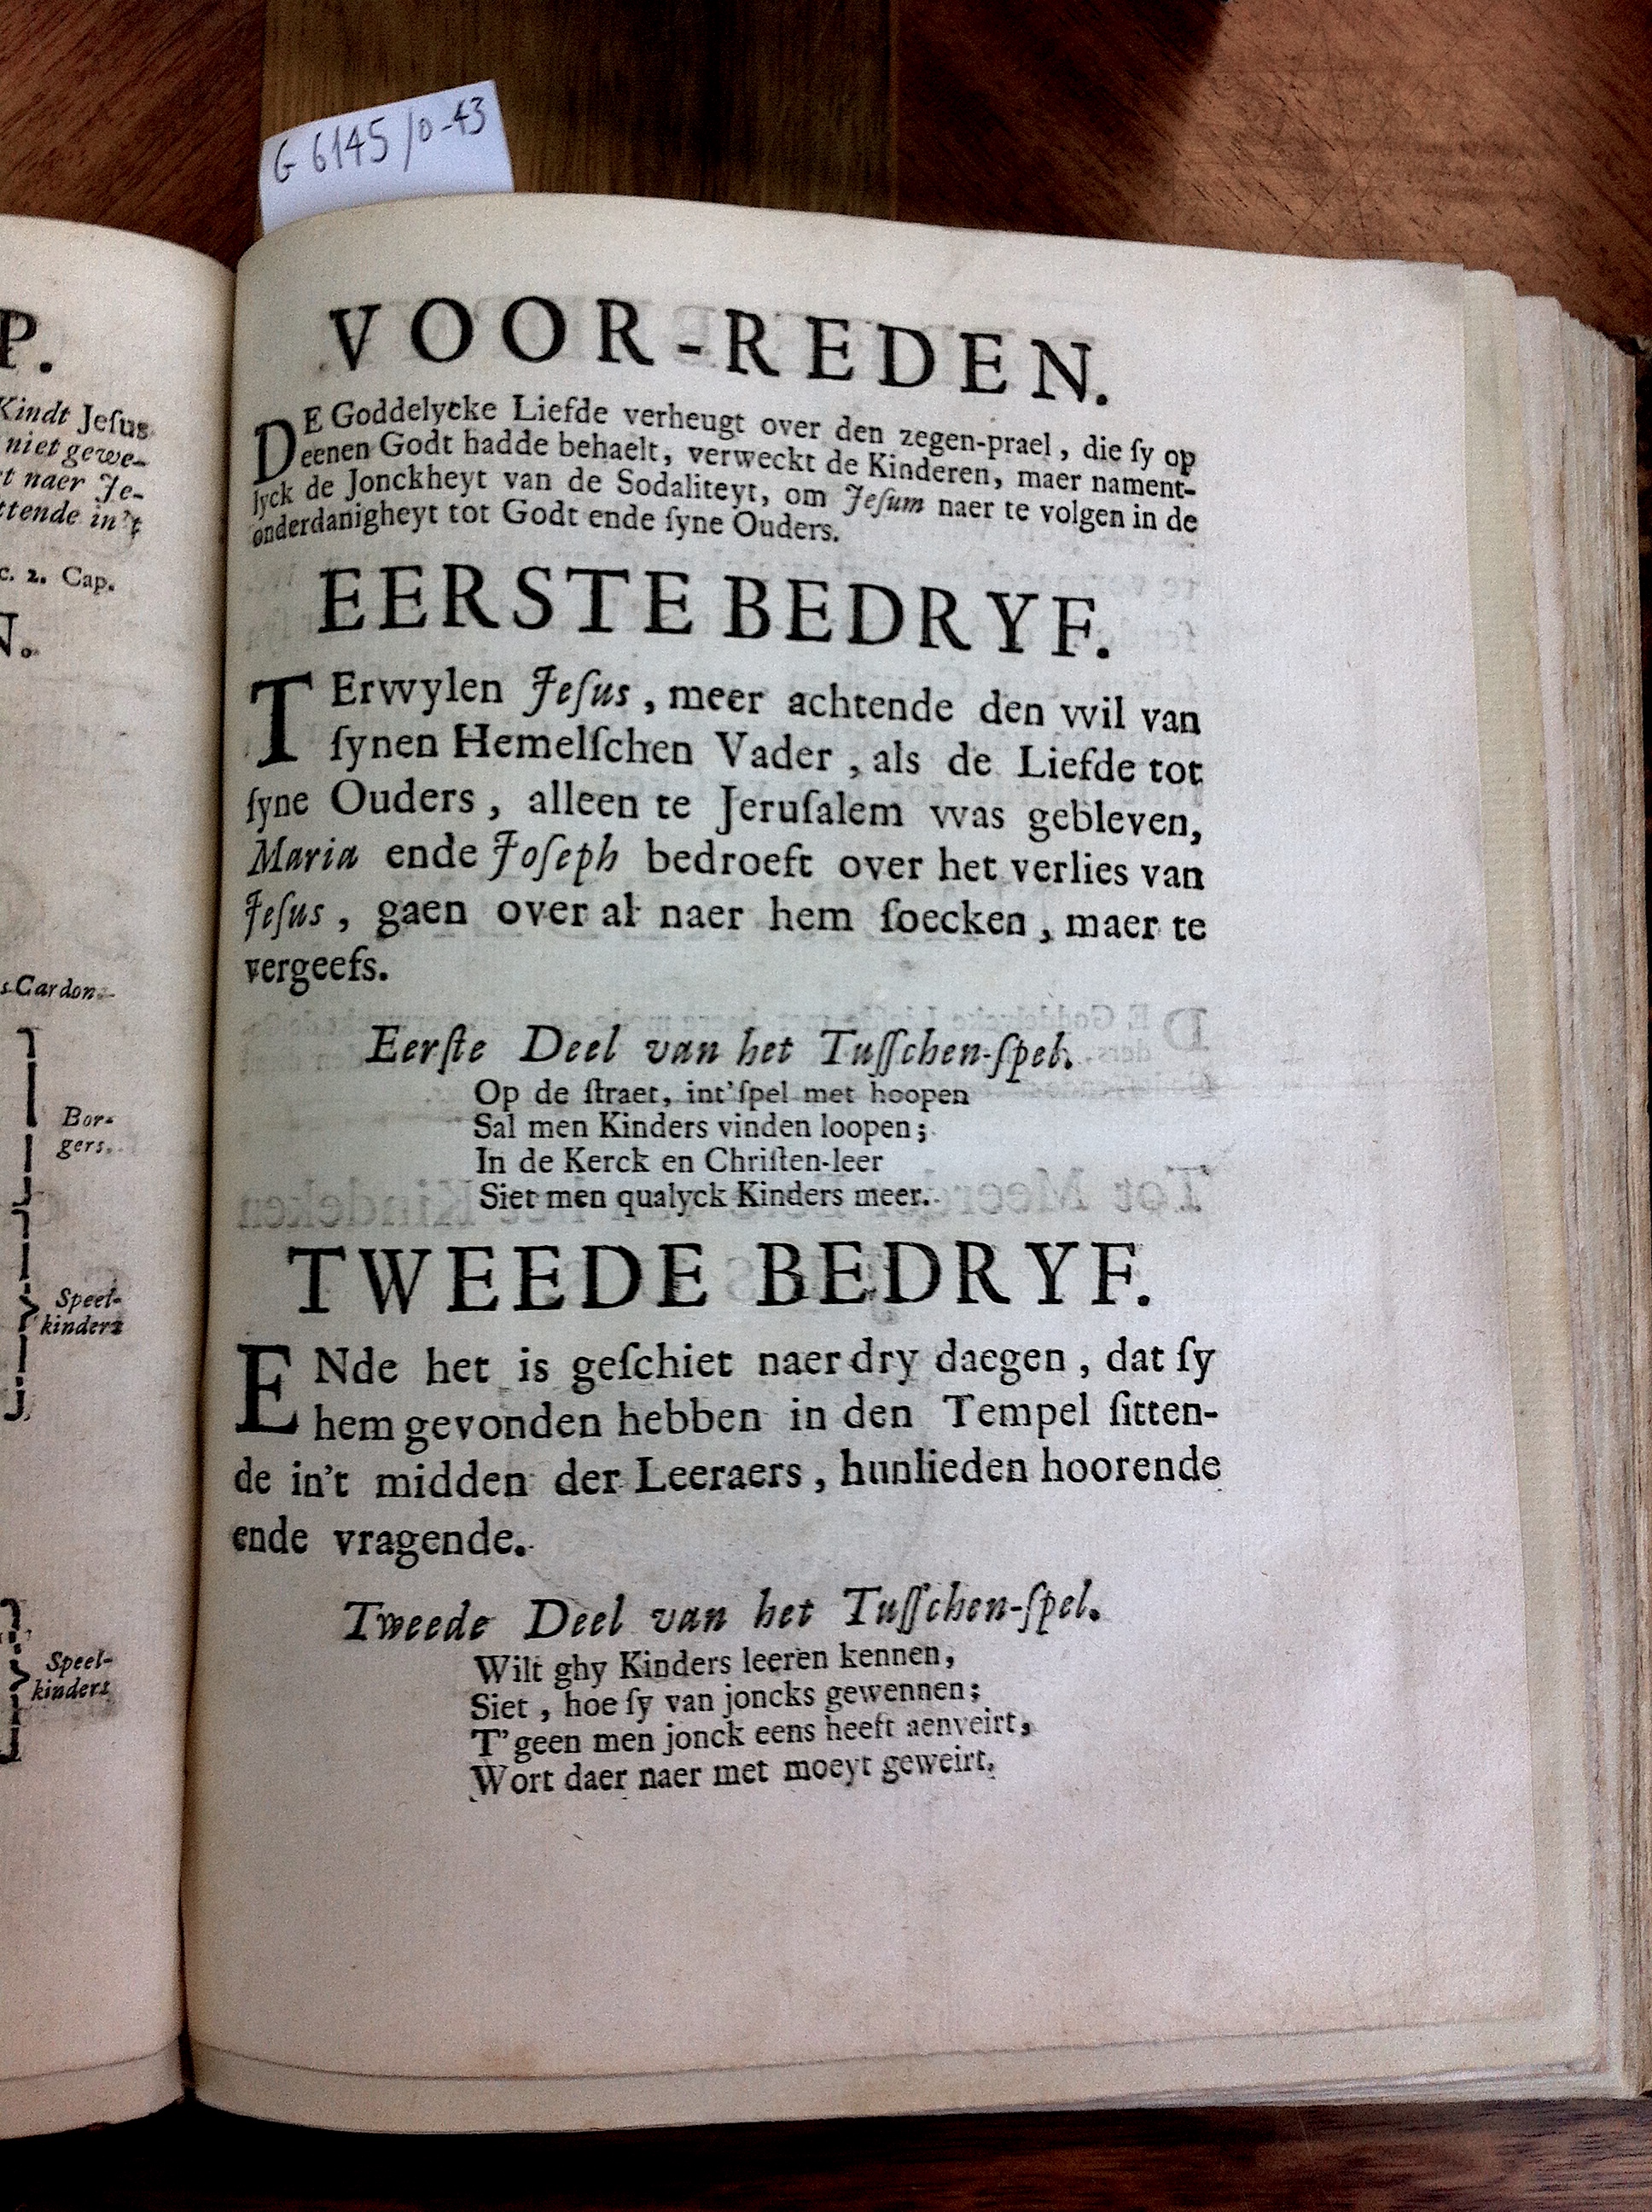 G 6145/0-43
P.
Kindt Jeſus
niet gewe-
t naer Je-
ttende in't
c. 2. Cap.
N.
s Cardon.
Bor-
gers.
Speel-
kinders
Speel-
kinders
VOOR-REDEN.
DE Goddelycke Liefde verheugt over den zegen-prael, die ſy op
eenen Godt hadde behaelt, verweckt de Kinderen, maer nament-
lyck de Jonckheyt van de Sodaliteyt, om Jeſum naer te volgen in de
onderdanigheyt tot Godt ende ſyne Ouders.
EERSTE BEDRYF.
TErwylen Jeſus, meer achtende den wil van
ſynen Hemelſchen Vader, als de Liefde tot
ſyne Ouders, alleen te Jeruſalem was gebleven,
Maria ende Joſeph bedroeft over het verlies van
Jeſus, gaen over al naer hem ſoecken, maer te
vergeefs.
Eerſte Deel van het Tuſſchen-ſpel.
Op de ſtraet, int'ſpel met hoopen
Sal men Kinders vinden loopen;
In de Kerck en Chriſten-leer
Siet men qualyck Kinders meer.
TWEEDE BEDRYF.
ENde het is geſchiet naer dry daegen, dat ſy
hem gevonden hebben in den Tempel ſitten-
de in't midden der Leeraers, hunlieden hoorende
ende vragende.
Tweede Deel van het Tuſſchen-ſpel.
Wilt ghy Kinders leeren kennen,
Siet, hoe ſy van joncks gewennen;
T'geen men jonck eens heeft aenveirt,
Wort daer naer met moeyt geweirt.